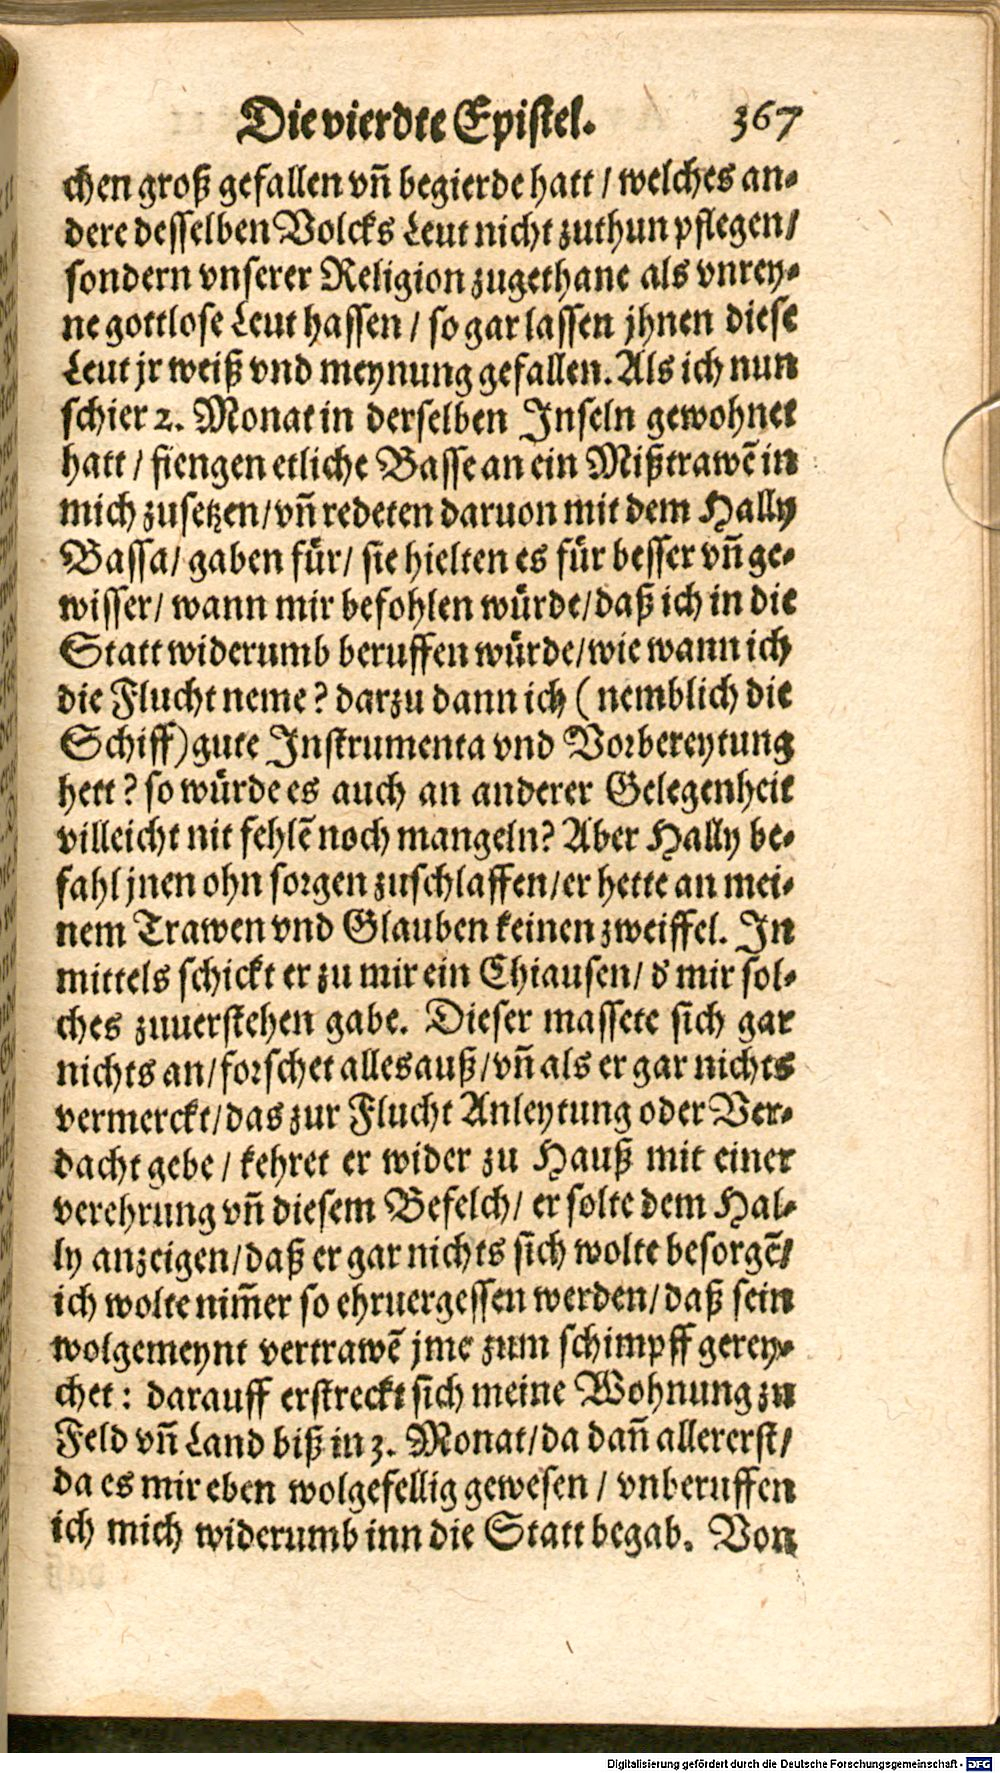 Die vierdte Epistel. 367
chen groß gefallen vñ begierde hatt / welches an-
dere desselben Volcks Leut nicht zuthun pflegen /
sondern vnserer Religion zugethane als vnrey-
ne gottlose Leut hassen / so gar lassen jhnen diese
Leut jr weiß vnd meynung gefallen. Als ich nun
schier 2. Monat in derselben Inseln gewohnet
hatt / fiengen etliche Basse an ein Mißtrawẽ in
mich zusetzen / vñ redeten daruon mit dem Hally
Bassa / gaben für / sie hielten es für besser vñ ge-
wisser / wann mir befohlen würde / daß ich in die
Statt widerumb beruffen würde / wie wann ich
die Flucht neme? darzu dann ich ( nemblich die
Schiff) gute Instrumenta vnd Vorbereytung
hett? so würde es auch an anderer Gelegenheit
villeicht nit fehlẽ noch mangeln? Aber Hally be-
fahl jnen ohn sorgen zuschlaffen / er hette an mei-
nem Trawen vnd Glauben keinen zweiffel. In
mittels schickt er zu mir ein Chiausen / d mir sol-
ches zuuerstehen gabe. Dieser massete sich gar
nichts an / forschet alles auß / vñ als er gar nichts
vermerckt / das zur Flucht Anleytung oder Ver-
dacht gebe / kehret er wider zu Hauß mit einer
verehrung vñ diesem Befelch / er solte dem Hal-
ly anzeigen / daß er gar nichts sich wolte besorgẽ /
ich wolte nim̃er so ehruergessen werden / daß sein
wolgemeynt vertrawẽ jme zum schimpff gerey-
chet : darauff erstreckt sich meine Wohnung zu
Feld vñ Land biß in 3. Monat / da dañ allererst /
da es mir eben wolgefellig gewesen / vnberuffen
ich mich widerumb inn die Statt begab. Von
Digitalisierung gefördert durch die Deutsche Forschungsgemeinschaft - DFG